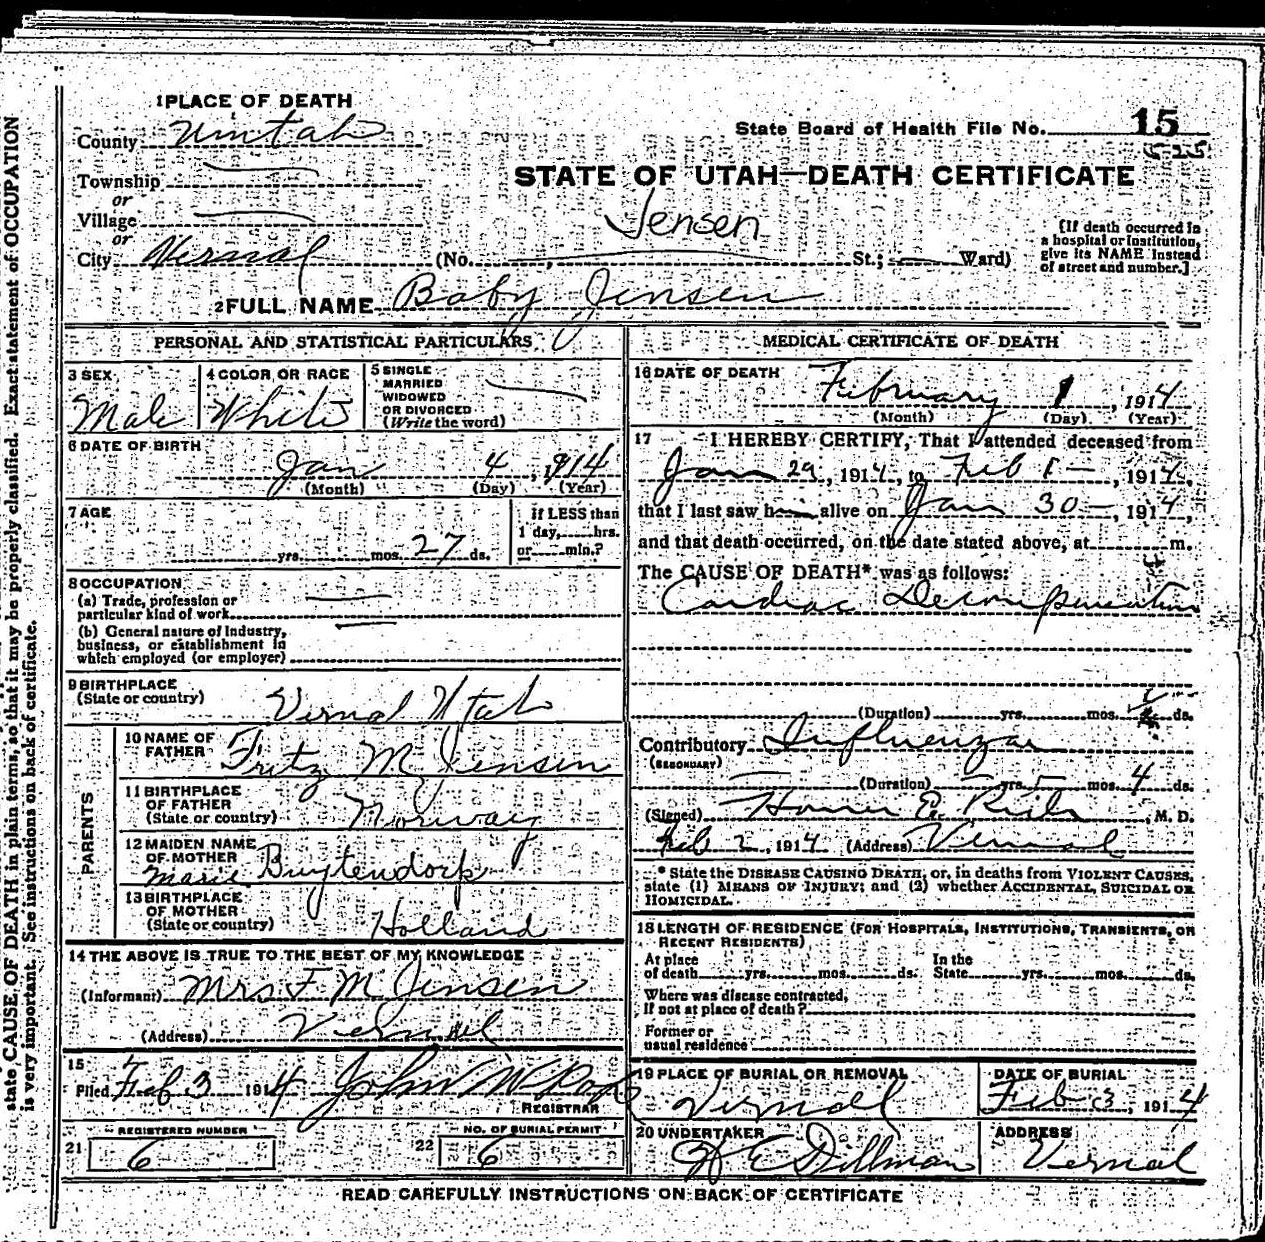 state CAUSE OF DEATH in plain terms, so that it may be properly classified. Exact statement of OCCUPATION
is very important. See instructions on back of certificate.
1 PLACE OF DEATH
County Uintah
State Board of Health File No. 15
525
Township
or
Village
or
City Vernal
STATE OF UTAH—DEATH CERTIFICATE
Jensen
(No. , St.; Ward)
[If death occurred in
a hospital or institution,
give its NAME instead
of street and number.]
2 FULL NAME Baby Jensen
PERSONAL AND STATISTICAL PARTICULARS
3 SEX
Male
4 COLOR OR RACE
White
5 SINGLE
MARRIED
WIDOWED
OR DIVORCED
(Write the word)
6 DATE OF BIRTH
Jan 4, 1914
(Month) (Day) (Year)
7 AGE
yrs. mos. 27 ds.
if LESS than
1 day, hrs.
or min.?
8 OCCUPATION
(a) Trade, profession or
particular kind of work
(b) General nature of industry,
business, or establishment in
which employed (or employer)
9 BIRTHPLACE
(State or country) Vernal Utah
PARENTS
10 NAME OF
FATHER Fritz M Jensen
11 BIRTHPLACE
OF FATHER
(State or country) Norway
12 MAIDEN NAME
OF MOTHER
Marie Buytendorp
13 BIRTHPLACE
OF MOTHER
(State or country) Holland
14 THE ABOVE IS TRUE TO THE BEST OF MY KNOWLEDGE
(Informant) Mrs F. M Jensen
(Address) Vernal
15
Filed Feb 3 1914 John W Pope
REGISTRAR
REGISTERED NUMBER
21 6
NO. OF BURIAL PERMIT
22 6
MEDICAL CERTIFICATE OF DEATH
16 DATE OF DEATH
February 1, 1914
(Month) (Day) (Year)
17 I HEREBY CERTIFY, That I attended deceased from
Jan 29, 1914, to Feb 1, 1914,
that I last saw h alive on Jan 30, 1914,
and that death occurred, on the date stated above, at m.
The CAUSE OF DEATH* was as follows:
Cardiac Decompensation
(Duration) yrs. mos. ds.
Contributory Influenza
(SECONDARY)
(Duration) yrs. mos. 4 ds.
(Signed) Homer E. Rich, M. D.
Feb 2, 1914 (Address) Vernal
* State the DISEASE CAUSING DEATH; or, in deaths from VIOLENT CAUSES,
state (1) MEANS OF INJURY; and (2) whether ACCIDENTAL, SUICIDAL OR
HOMICIDAL.
18 LENGTH OF RESIDENCE (FOR HOSPITALS, INSTITUTIONS, TRANSIENTS, OR
RECENT RESIDENTS)
At place
of death yrs. mos. ds. In the
State yrs. mos. ds.
Where was disease contracted,
If not at place of death?
Former or
usual residence
19 PLACE OF BURIAL OR REMOVAL
Vernal
DATE OF BURIAL
Feb 3, 1914
20 UNDERTAKER
W E Dillman
ADDRESS
Vernal
READ CAREFULLY INSTRUCTIONS ON BACK OF CERTIFICATE